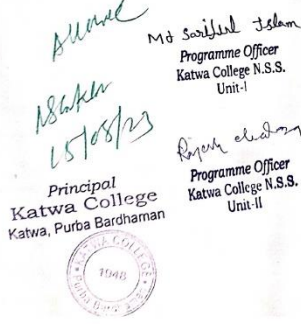 Allowed
15/08/23
Principal
Katwa College
Katwa, Purba Bardhaman
KATWA COLLEGE
1948
Purba Bardhaman
Md Sariful Islam
Programme Officer
Katwa College N.S.S.
Unit-I
Programme Officer
Katwa College N.S.S.
Unit-II